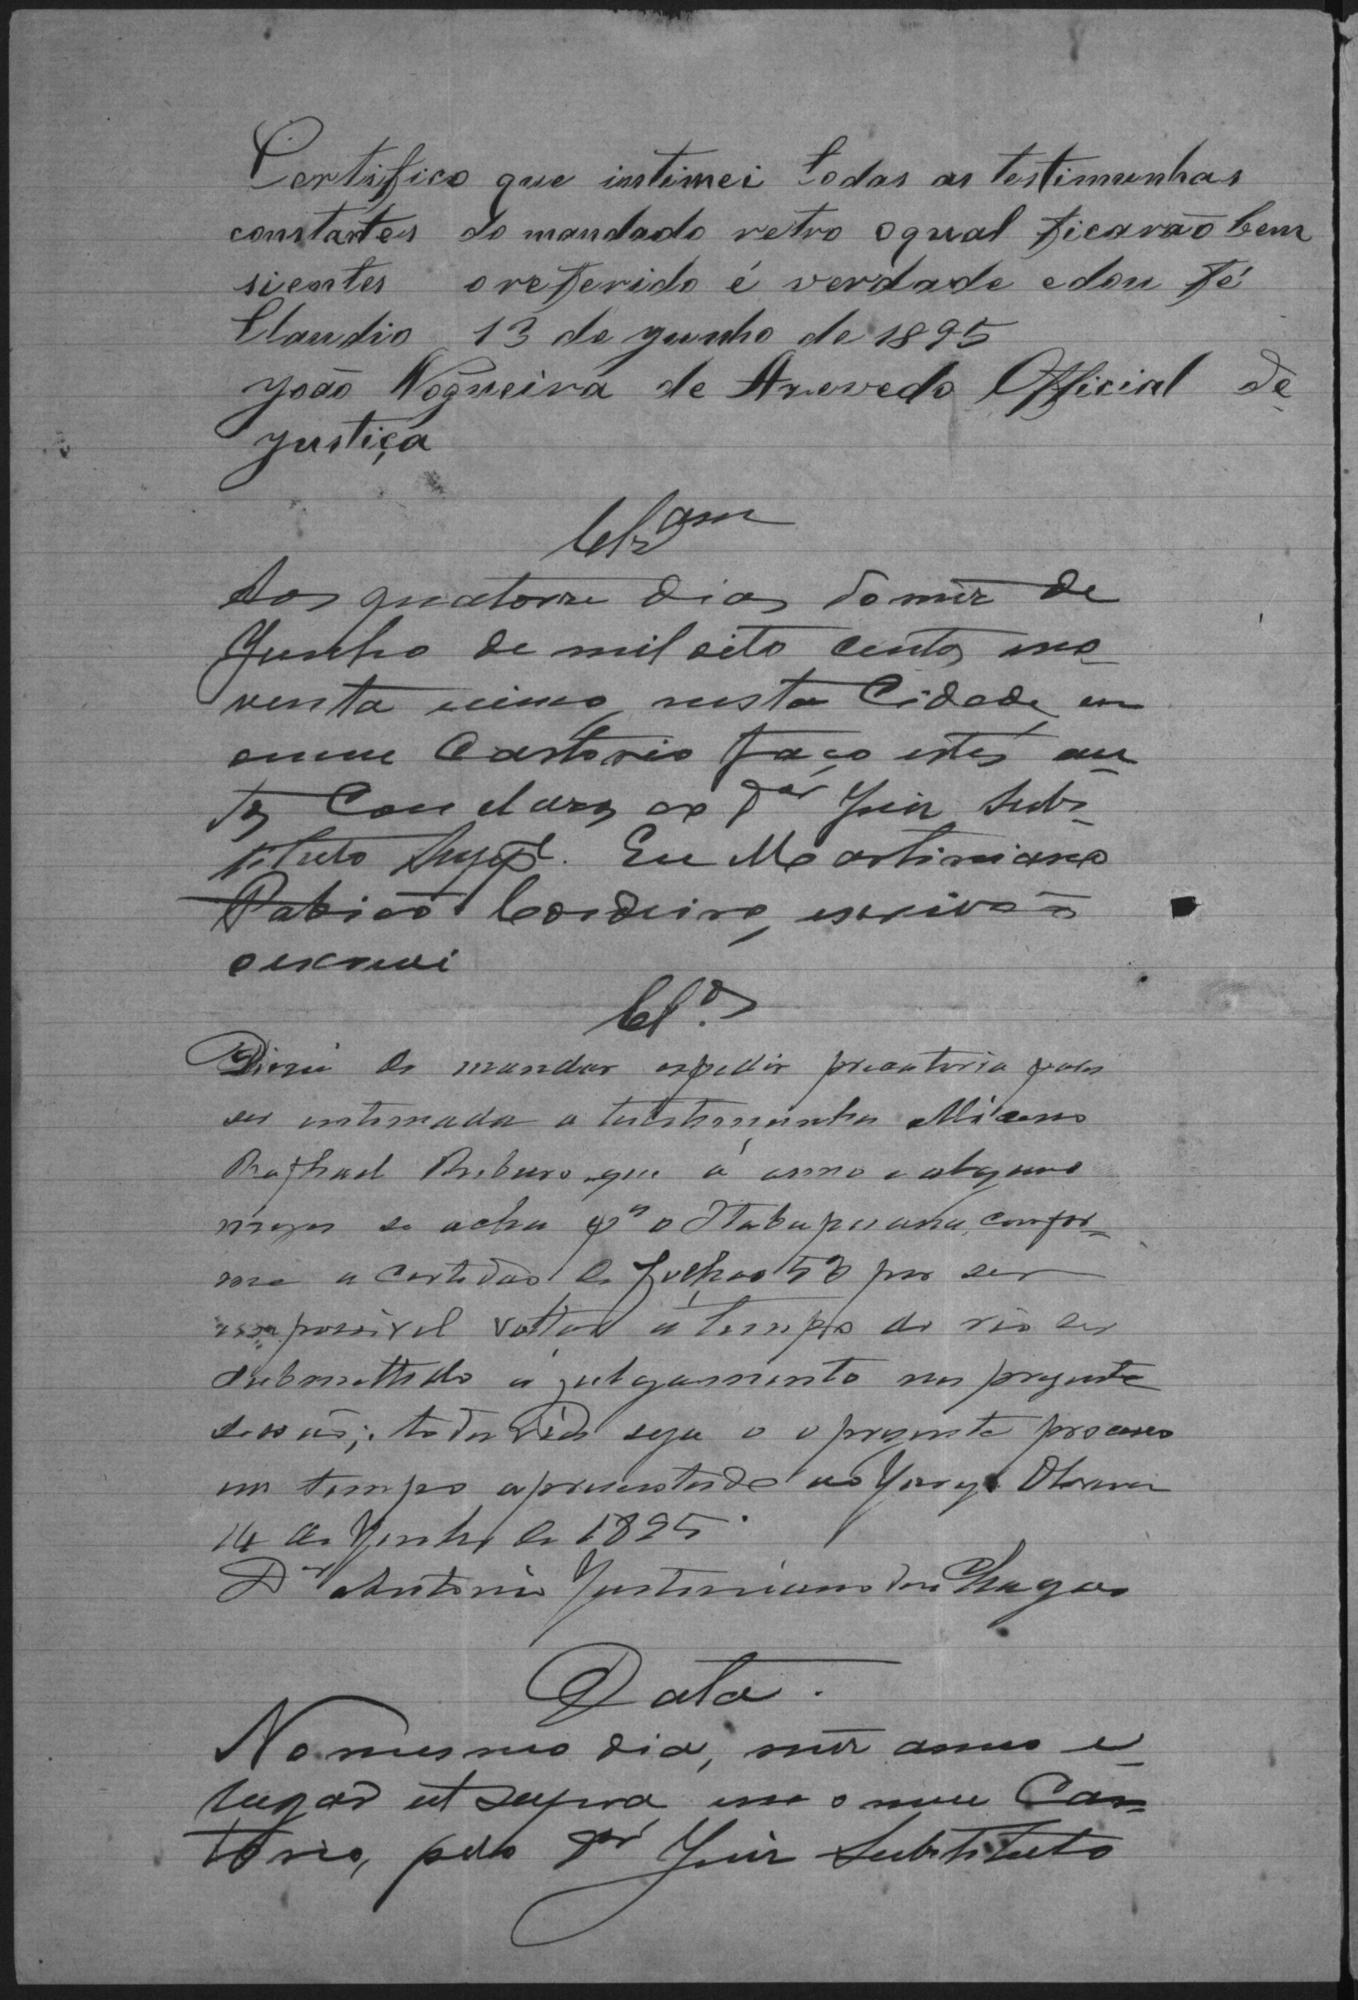 Certifico que intimei todas as testimunhas
constantes do mandado retro oqual ficarão bem
sientes oreferido é verdade edou fé
Claudio 13 de Junho de 1895
João Nogueira de Azevedo Official de
justiça
Clzam
Aos quatorze dias do mez de
Junho de mil oito centos no-
venta cinco, nesta Cidade, em
omeu Cartorio faço estes au-
tos Conclusos ao Dor Juiz Subs-
tituto Suppl. Eu Martiniano
Cordeiro, escrivão
oescrevi
Clos
Deixei de mandar expedir precatoria para
ser intimada a testimunha
Raphael Ribeiro que á anno e alguns
mezes se acha pa o Itabapuana, confor-
me a certidão de folhas 53 por ser
impossivel voltar á tempo do réo ser
submettido a julgamento na presente
sessão; todavia seja o o presente processo
em tempo apresentado ao Jury. Oliveira
14 de Junho de 1895.
Dr Antonio Justiniano das Chagas
Data.
No mesmo dia, mez anno e
lugar ut supra em o meu Car-
torio, pelo Dor Juiz Substituto